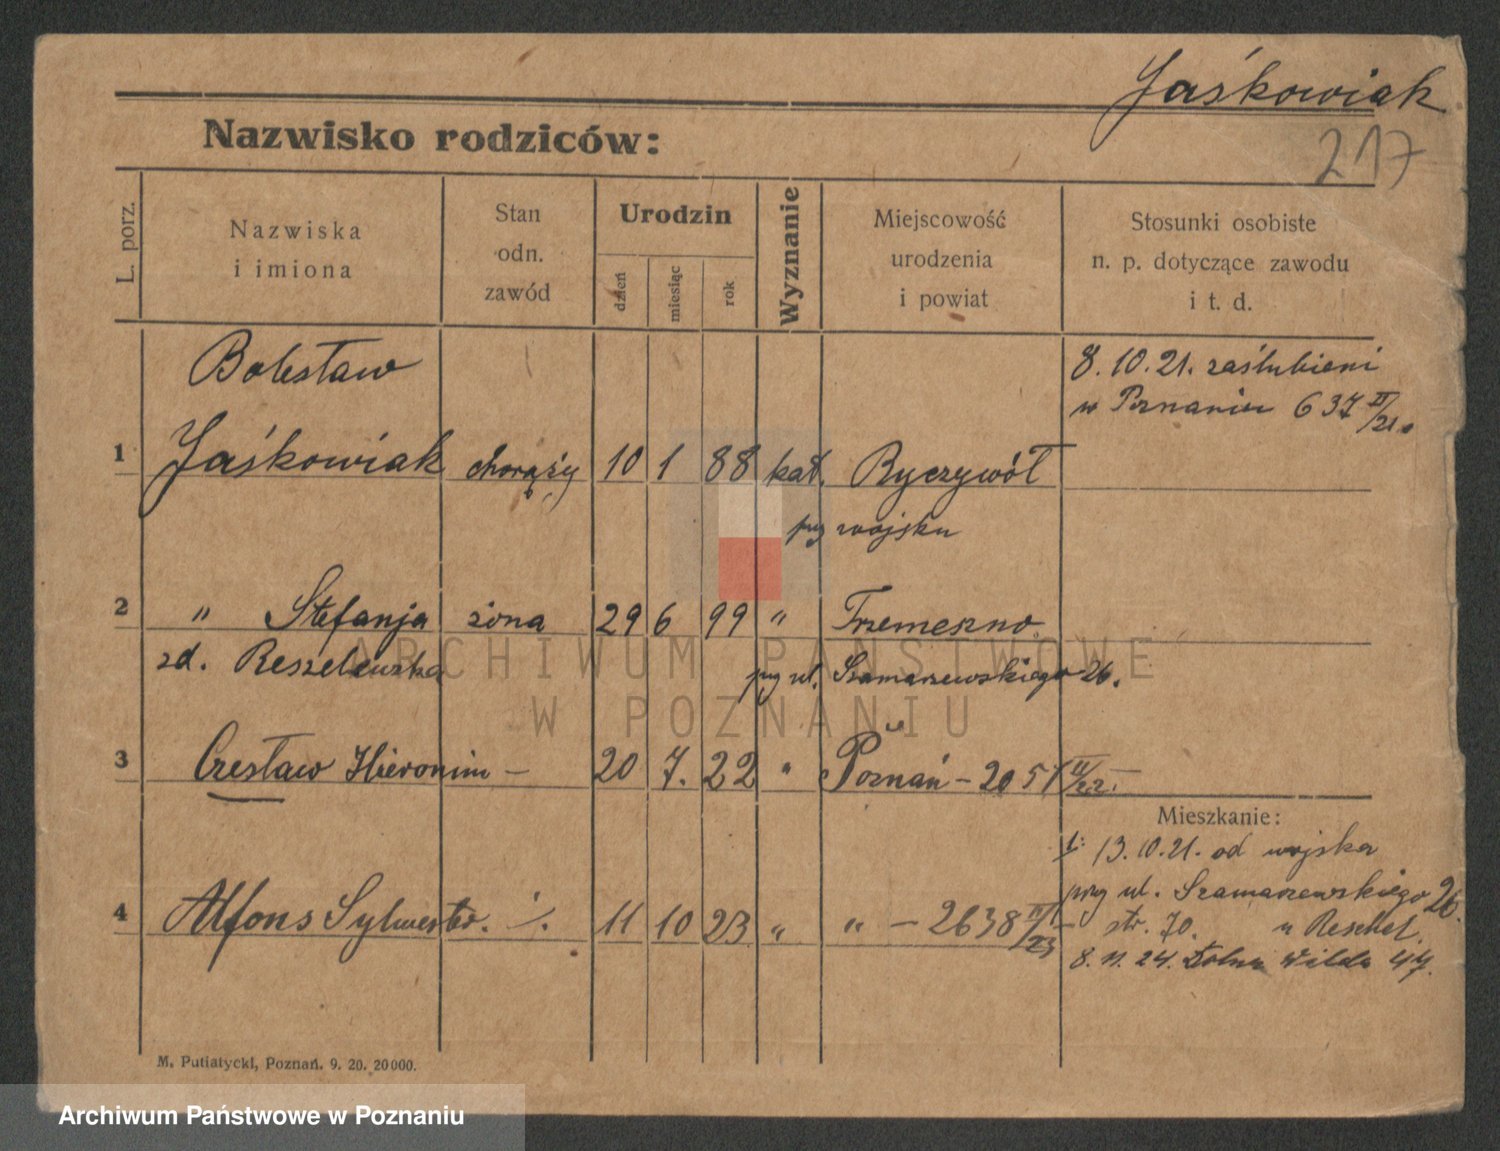 Jaśkowiak
217
Nazwisko rodziców:
L. porz.
Nazwiska
i imiona
Stan
odn.
zawód
Urodzin
dzień
miesiąc
rok
Wyznanie
Miejscowość
urodzenia
i powiat
Stosunki osobiste
n. p. dotyczące zawodu
i t. d.
Bolesław
8. 10. 21. zaślubieni
w Poznaniu 637 II/21.
1 Jaśkowiak chorąży 10 1 88 kat. Ryczywół
przy wojsku
2 " Stefanja żona 29 6 99 " Trzemeszno
zd. Reszelewska przy ul. Szamarzewskiego 26.
3 Czesław Hieronim — 20 7. 22 " Poznań — 2051 II/22. —
Mieszkanie:
1: 13. 10. 21. od wojska
przy ul. Szamarzewskiego 26.
4 Alfons Sylwester. ./. 11 10 23 " " — 2638 II/23 —
str. 70. u Reschel.
8. 11. 24. Dolna Wilda 44.
M. Putiatycki, Poznań. 9. 20. 20000.
ARCHIWUM PAŃSTWOWE
W POZNANIU
Archiwum Państwowe w Poznaniu